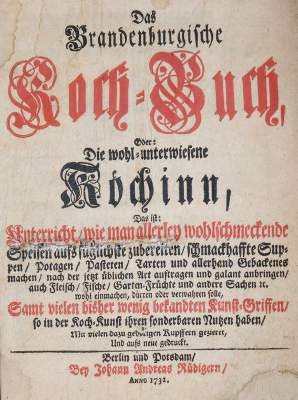 Das
Brandenburgische
Koch-Buch,
Oder:
Die wohl-unterwiesene
Köchinn,
Das ist:
Unterricht, wie man allerley wohlschmeckende
Speisen aufs füglichste zubereiten/ schmackhaffte Sup-
pen/ Potagen/ Pasteten/ Tarten und allerhand Gebackenes
machen/ nach der jetzt üblichen Art auftragen und galant anbringen/
auch Fleisch/ Fische/ Garten-Früchte und andere Sachen ꝛc.
wohl einmachen, dürren oder verwahren solle,
Samt vielen bisher wenig bekandten Kunst-Griffen/
so in der Koch-Kunst ihren sonderbaren Nutzen haben/
Mit vielen dazu gehörigen Kupffern gezieret,
Und aufs neue gedruckt.
Berlin und Potsdam/
Bey Johann Andreas Rüdigern/
ANNO 1732.